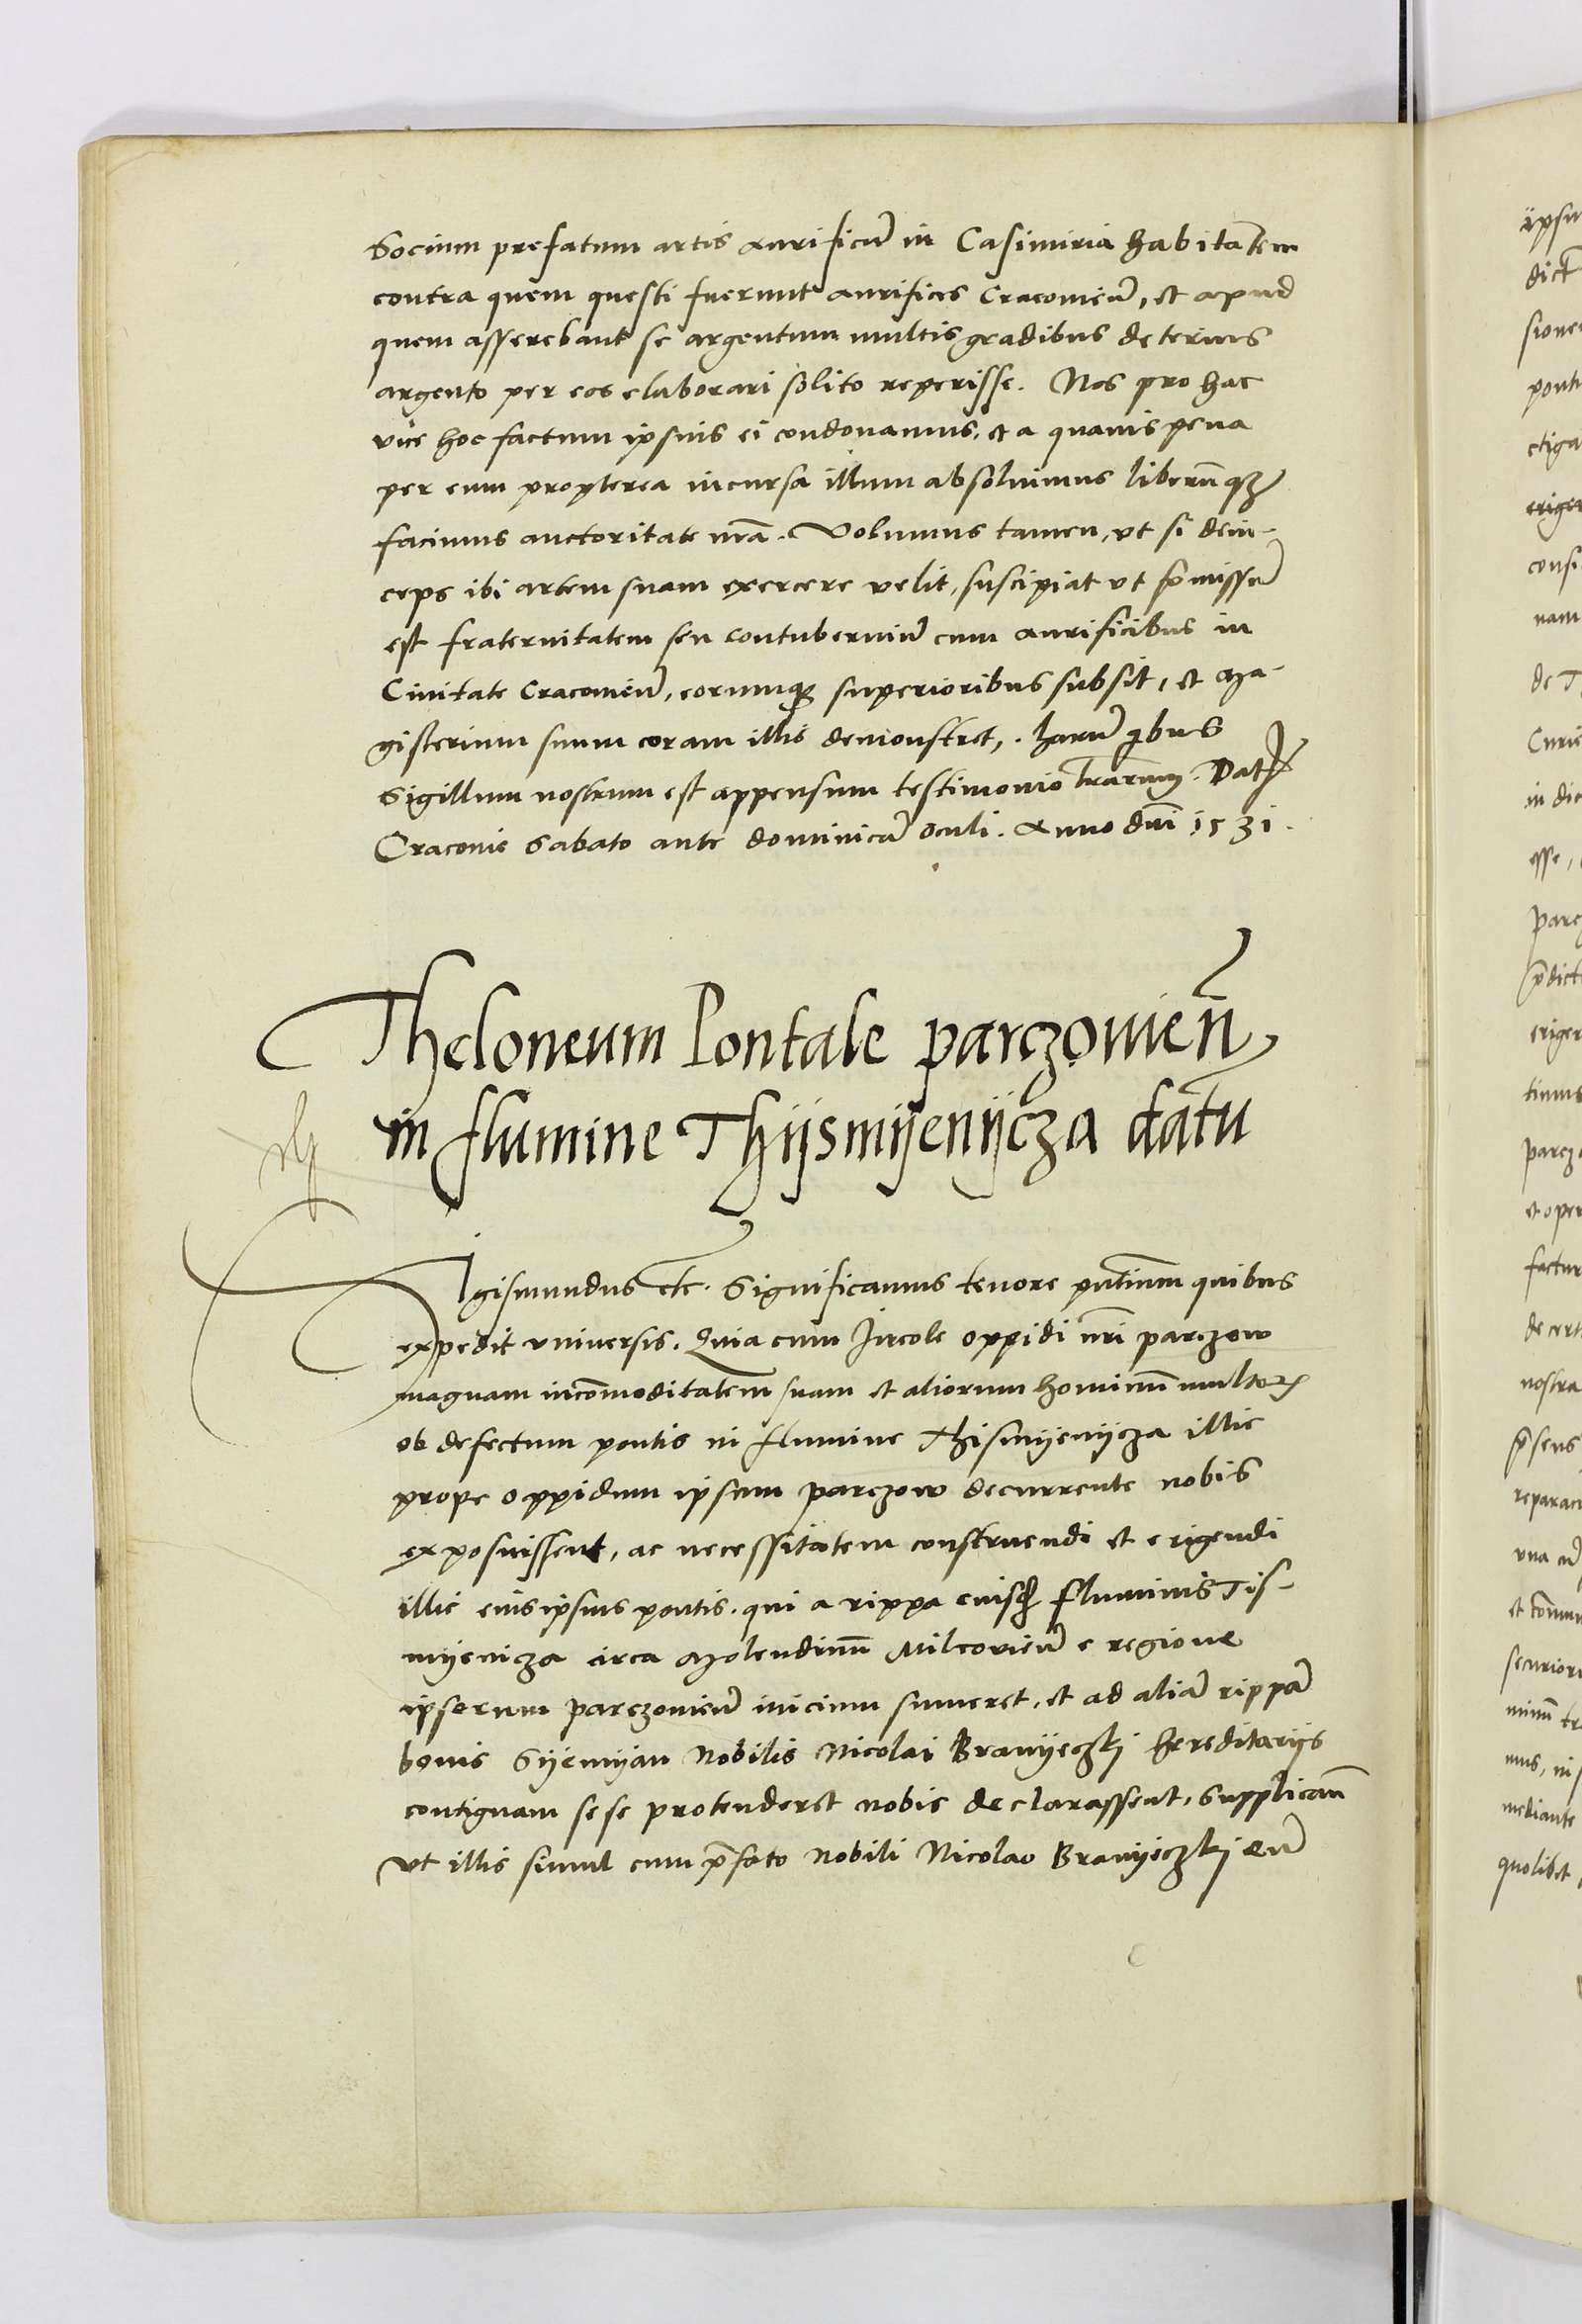 Socium prefatum artis Aurificũ in Casimiria habitantem
contra quem questi fuerunt aurifices Cracovieñ, et apud
quem asserebant se argentum multis gradibus deterius
argento per eos elaborari solito reperisse. Nos pro hac
vice hoc factum ipsius ei condonamus, et a quavis pena
per eum propterea incursa illum absolvimus liberũqꝫ
facimus auctoritate nrã. Volumus tamen, vt si dein-
ceps ibi artem suam exercere velit, suscipiat vt p̃missũ
est fraternitatem seu contuberniũ cum aurificibus in
Civitate Cracovieñ, eorumqꝫ superioribus subsit, et Ma-
gisterium suum coram illis demonstret, harũ qibus
Sigillum nostrum est appensum testimonio lr̃arum. Datꝭ
Cracovie Sabato ante dominicã Oculi. Anno dñi 1531.
Theloneum Pontale parczovieñ
in flumine Thijsmijenijcza datũ
Sigismundus etc. Significamus tenore pñtium quibus
expedit vniversis. Quia cum Incole oppidi nr̃i parczow
magnam incõmoditatem suam et aliorum hominũ multoꝝ
ob defectum pontis in flumine Thismijenijcza illic
prope oppidum ipsum parczow decurrente nobis
exposuissent, ac necessitatem construendi et erigendi
illic eius ipsius pontis, qui a rippa eiusdẽ fluminis Tis-
myenicza circa Molendinũ Milcovieñ e regione
ipsorum parczovieñ inicium sumeret, et ad aliã rippã
bonis Syemyan Nobilis Nicolai Branyeczkj hereditariis
contiguam sese protenderet nobis declarassent, Supplicarũt
vt illis simul cum p̃fato Nobili Nicolao Branyeczkj eũ
ipsu
dict
sione
ponti
ctiga
erige
consi
nam
de T
Curie
in dic
esse,
parcz
p̃dict
eriger
timus
parcz
et oper
factur
de cert
nostra
p̃sens
reparaci
vna cũ
et cõmu
securior
minũ tr
mus, nis
mediante
quolibet